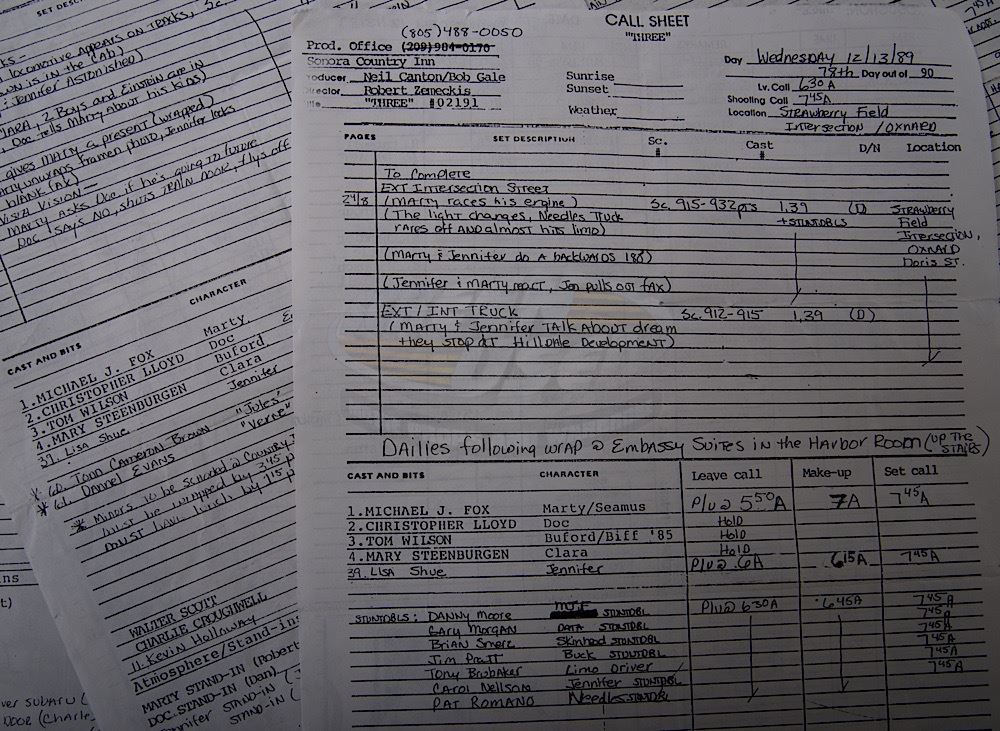 CALL SHEET
"THREE"
(805) 488-0050
Prod. Office (209) 984-0170
Sonora Country Inn
Producer Neil Canton/Bob Gale
Director Robert Zemeckis
"THREE" #02191
Sunrise
Sunset
Weather
Day Wednesday 12/13/89
78th Day out of 90
Lv. Call 630A
Shooting Call 745A
Location Strawberry Field
Intersection / Oxnard
PAGES SET DESCRIPTION Sc. # Cast # D/N Location
To Complete
EXT Intersection Street
2 4/8 (Marty races his engine) Sc. 915-932pts 1,39 (D) Strawberry
(The light changes, Needles Truck + STUNTDBLS Field
races off and almost hits limo) Intersection,
Oxnard
(Marty & Jennifer do a backwards 180) Doris St.
(Jennifer & Marty react, Jen pulls out fax)
EXT / INT TRUCK Sc. 912-915 1,39 (D)
(Marty & Jennifer talk about dream
they stop at Hilldale Development)
Dailies following wrap @ Embassy Suites in the Harbor Room (up the stairs)
CAST AND BITS CHARACTER Leave call Make-up Set call
1.MICHAEL J. FOX Marty/Seamus P/U @ 550A 7A 745A
2.CHRISTOPHER LLOYD Doc Hold
3.TOM WILSON Buford/Biff '85 Hold
4.MARY STEENBURGEN Clara Hold
39. Lisa Shue Jennifer P/U @ 6A 615A 745A
STUNTDBLS: Danny Moore MJF STUNTDBL P/U @ 630A 645A 745A
Gary Morgan Data STUNTDBL 745A
Brian Smrz Skinhead STUNTDBL 745A
Jim Pratt Buck STUNTDBL 745A
Tony Brubaker Limo Driver 745A
Carol Neilson Jennifer STUNTDBL
Pat Romano Needles STUNTDBL
SET DESCR
locomotive appears on tracks, Sc.
is in the cab)
Jennifer Astonished)
2 Boys and Einstein are in
Doc tells Marty about his kids)
gives Marty a present (wrapped)
unwraps framed photo, Jennifer looks
blank fax)
Vista Vision
Marty asks Doc if he's going to future
Doc says NO, shuts train door, flys off
CAST AND BITS CHARACTER
1.MICHAEL J. FOX Marty
2.CHRISTOPHER LLOYD Doc
3.TOM WILSON Buford
4.MARY STEENBURGEN Clara
39. Lisa Shue Jennifer
* 60. Todd Cameron Brown "Jules"
* 61. Dannel Evans "Verne"
* Minors to be schooled @ Country
must be wrapped by 345 P
must have lunch by 115 P
WALTER SCOTT
CHARLIE CROUGHWELL
11. Kevin Holloway
Atmosphere/Stand-ins
MARTY STAND-IN (Robert
DOC STAND-IN (Dan)
Jennifer STAND-IN
STAND-IN
ver Subaru
Door (Charle